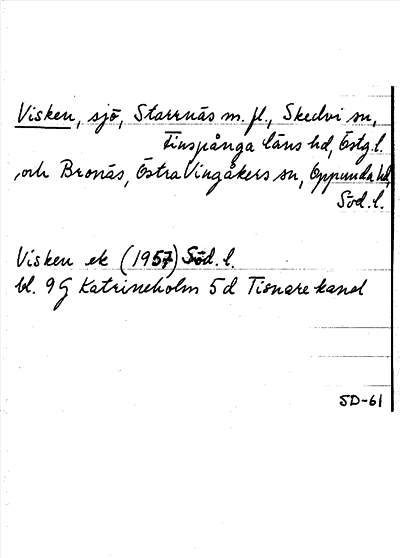 Visken, sjö, Starrnäs m. fl., Skedvi sn,
Finspånga läns hd, Östg. l.
och Bronäs, Östra Vingåkers sn, Oppunda hd,
Söd. l.
Visken ek (1957) Söd. l.
bl. 9 G Katrineholm 5 d Tisnare kanal
SD-61